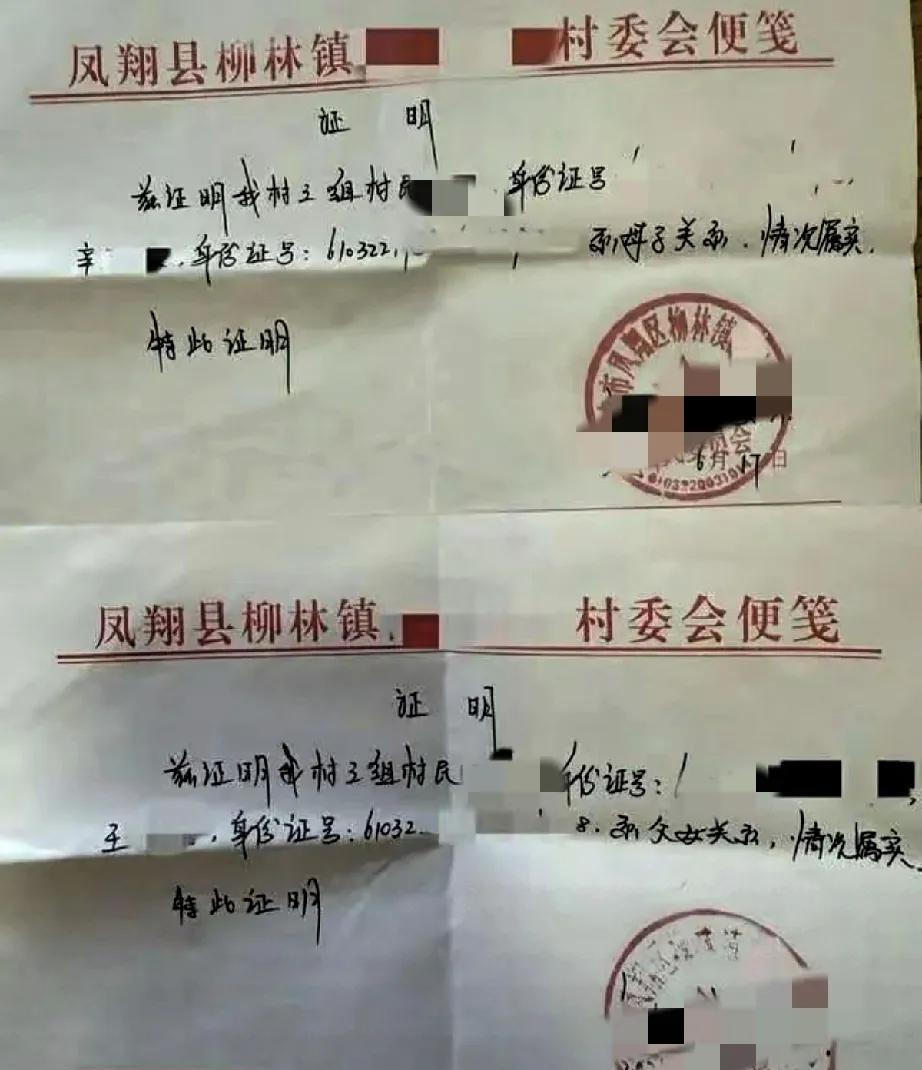 凤翔县柳林镇 村委会便笺
证 明
兹证明我村三组村民 身份证号
辛 ,身份证号:610322 系母子关系,情况属实.
特此证明
市凤翔区柳林镇
员会
6月17日
凤翔县柳林镇 村委会便笺
证 明
兹证明我村三组村民 身份证号:
王 ,身份证号:61032 8.系父女关系,情况属实.
特此证明